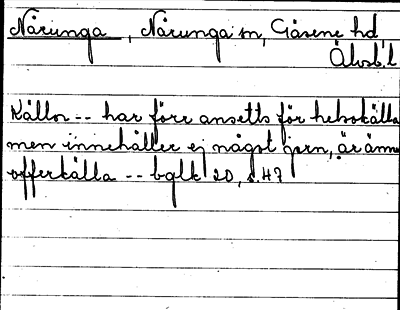 Nårunga, Nårunga sn, Gäsene hd,
Älvsb. l
Källor -- har förr ansetts för helsokälla
men innehåller ej något jern, är ännu
offerkälla -- bglk 20, s. 47